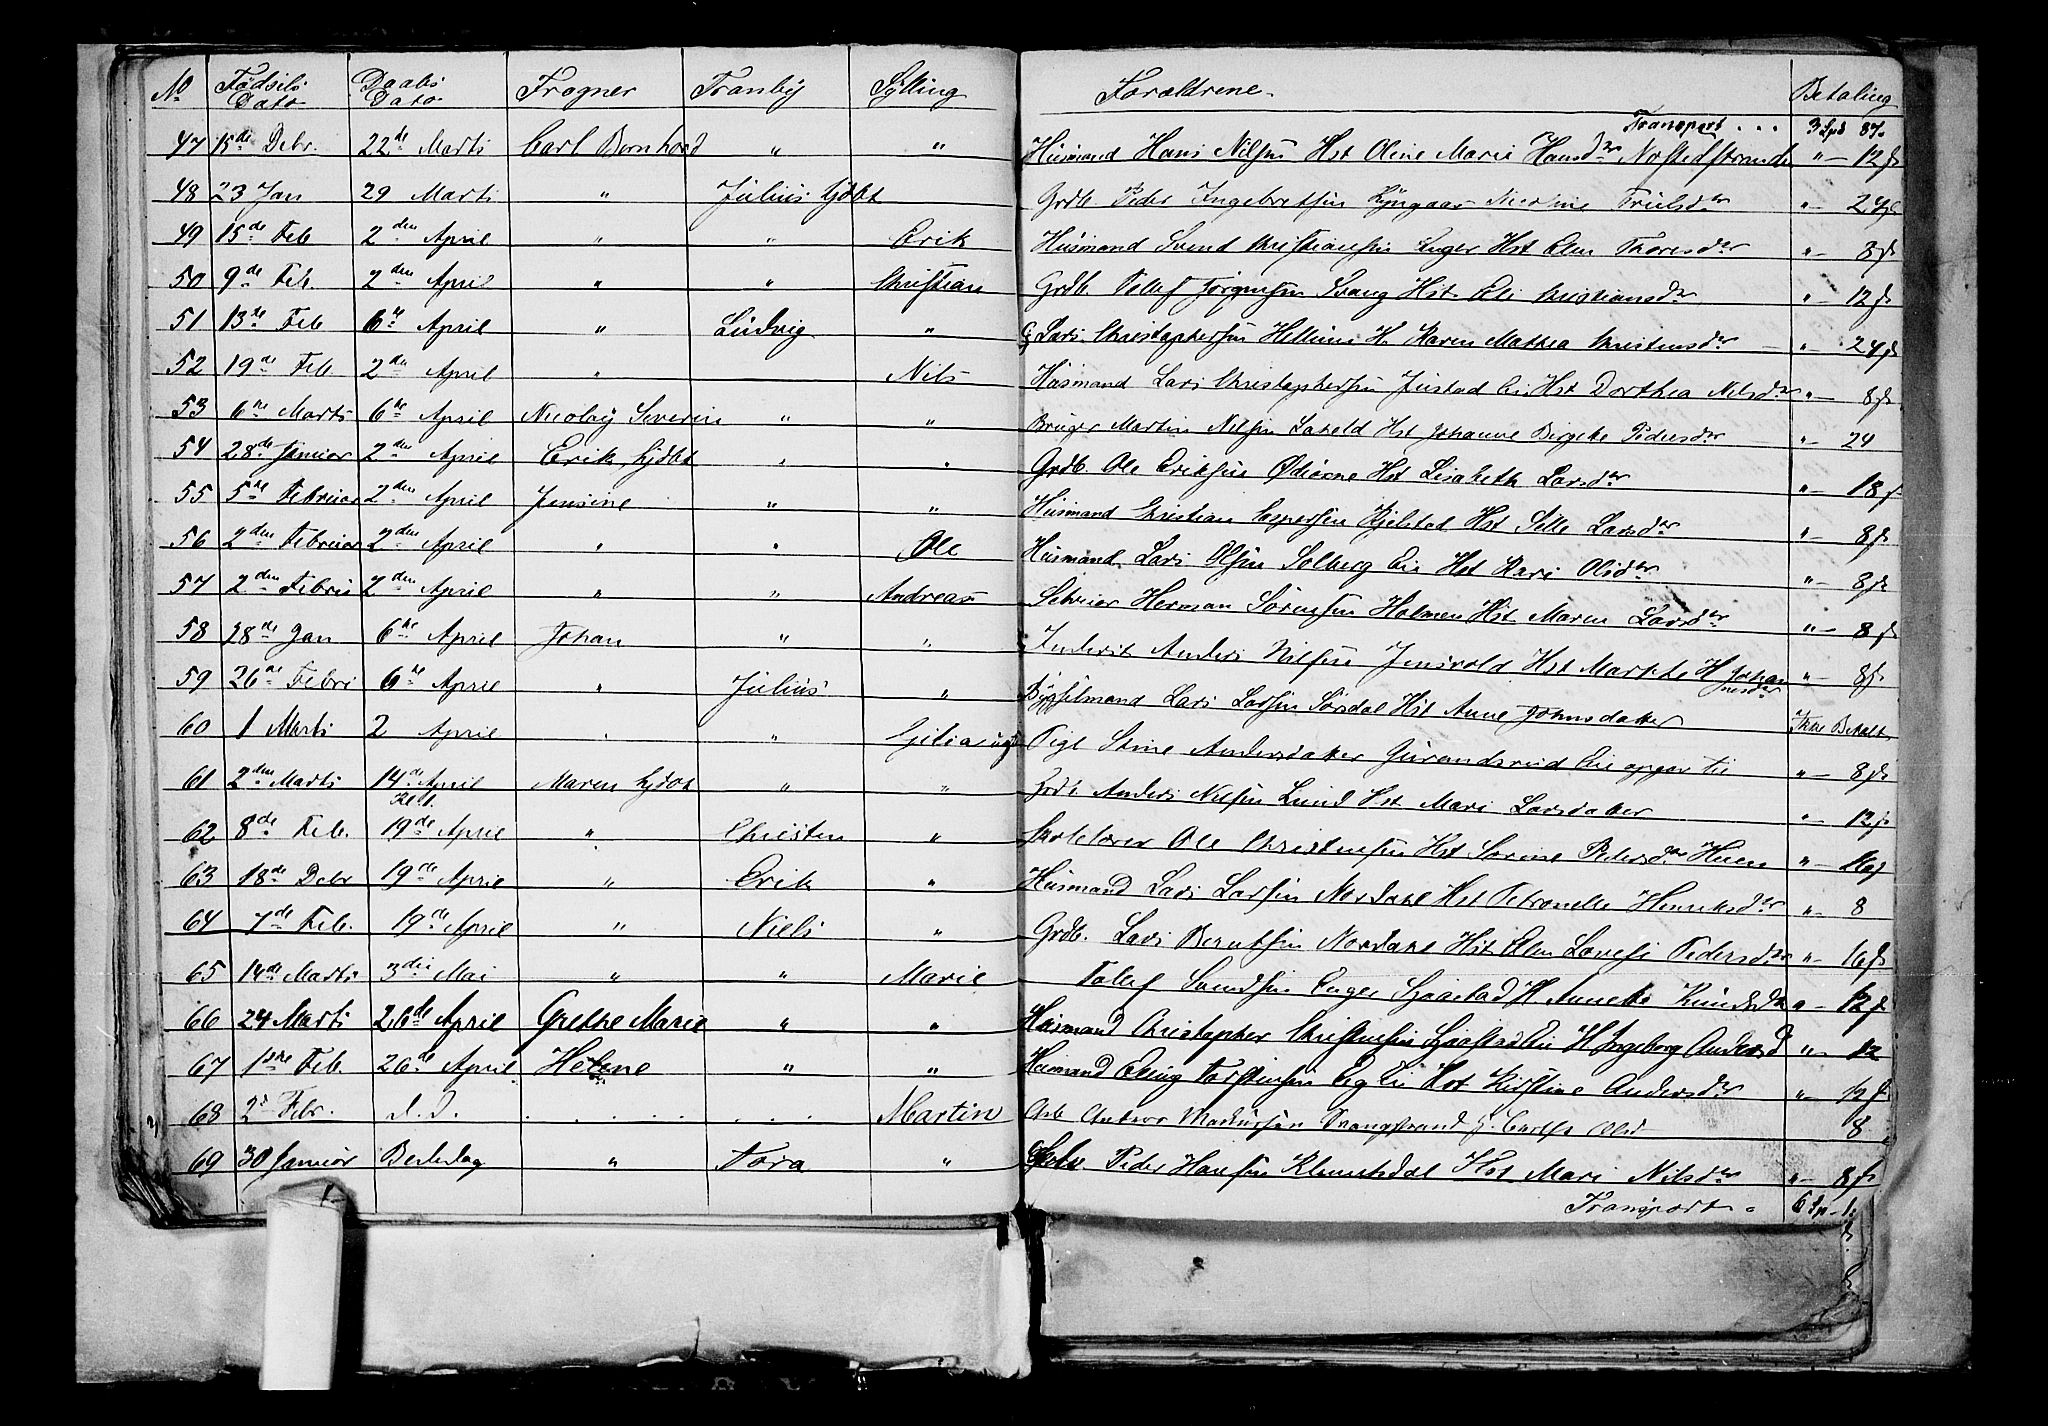 No Fødsels Dato Daabs Dato Frogner Tranby Sylling Forældrene Betaling
Transport . . . 3 Spd 87
47 15de Debr. 22de Marts Carl Bernhard " " Husmand Hans Nilsen Hst Oline Marie Hansdr Nøstedstrand " – 12 s
48 23 Jan 29 Marts " Julius Hjdbt Grdb. Peder Ingebretsen Nicoline Trulsdr " – 24 s
49 15de Feb 2den April " " Erik Husmand Svend Christiansen Enger Hst Elen Thoresdr " – 8 s
50 9de Feb. 2den April " " Christian Grdb. Tollef Jørgensen Svang Hst Eli Christiansdr " – 12 s
51 13de Feb 6te April " Ludvig " G Lars Christophersen Hellum H. Karen Mathea Christensdr " – 24 s
52 19de Feb 2den April " Nils Husmand Lars Christophersen Justad Eie Hst Dorthea Nilsdr " – 8 s
53 6te Marts 6te April Nicolay Severin " " Bruger Martin Nilsen Hst Johanne Birgitte Pedersdr " – 24
54 28de Januar 2den April Erik Hjdbt " " Grdb. Ole Eriksen Ødiorne Hst Lisabeth Larsdr " – 18 s
55 5te Februar 2den April Jensine " " Husmand Christian Caspersen Kjelstad Hst Sille Larsdr " – 8 s
56 2den Februar 2den April " " Ole Husmand Lars Olsen Solberg Eie Hst Kari Olsdr " – 8 s
57 2den Febru 2den April " " Andreas Herman Sørensen Holmen Hst Maren Larsdr " – 8 s
58 28de Jan 6te April Johan " " Inderst Anders Nilsen Jensvold Hst Marthe H Johannesdr " – 8 s
59 26de Febr 6te April " Julius " Bygselmand Lars Larsen Sørsdal Hst Anne Johnsdatter Ikke Betalt
60 1 Marts 2 April " " Gilia Pige Stine Andersdatter Gurandsrud Eie " – 8 s
61 2den Marts 14de April Maren Hjdbt " " Grdb Anders Nilsen Lund Hst Mari Larsdatter " – 12 s
62 8de Feb. 19de April " Christen " Skolelærer Ole Christensen Hst Sorine Pedersdr Huen " – 16 s
63 18de Debr 19de April " Erik " Husmand Lars Larsen Nordahl Hst Petronelle Henriksdr " – 8
64 7de Feb. 19de April " Niels " Grdb. Lars Berntsen Nordahl Hst Elen Lovise Pedersdr " – 16 s
65 14de Marts 3die Mai " " Marie Tollef Svendsen Enger H Annette Knudsdr " – 12 s
66 24 Marts 26de April Grethe Marie " " Husmand Christopher Christensen Eie H Ingeborg Andersd " – 12
67 1ste Feb. 26de April Helene " " Husmand Torstensen Eg Eie Hst Kirstine Andersdr " – 12 s
68 2d Febr. d. d. . . . . . . Martin Arb Andreas Markussen Svangstrand Olsd 8
69 30 Januar Bededag " Tora " Peder Hansen Klemetsdal Hst Mari Nilsdr " – 8 s
Transport 6 Sp – 1